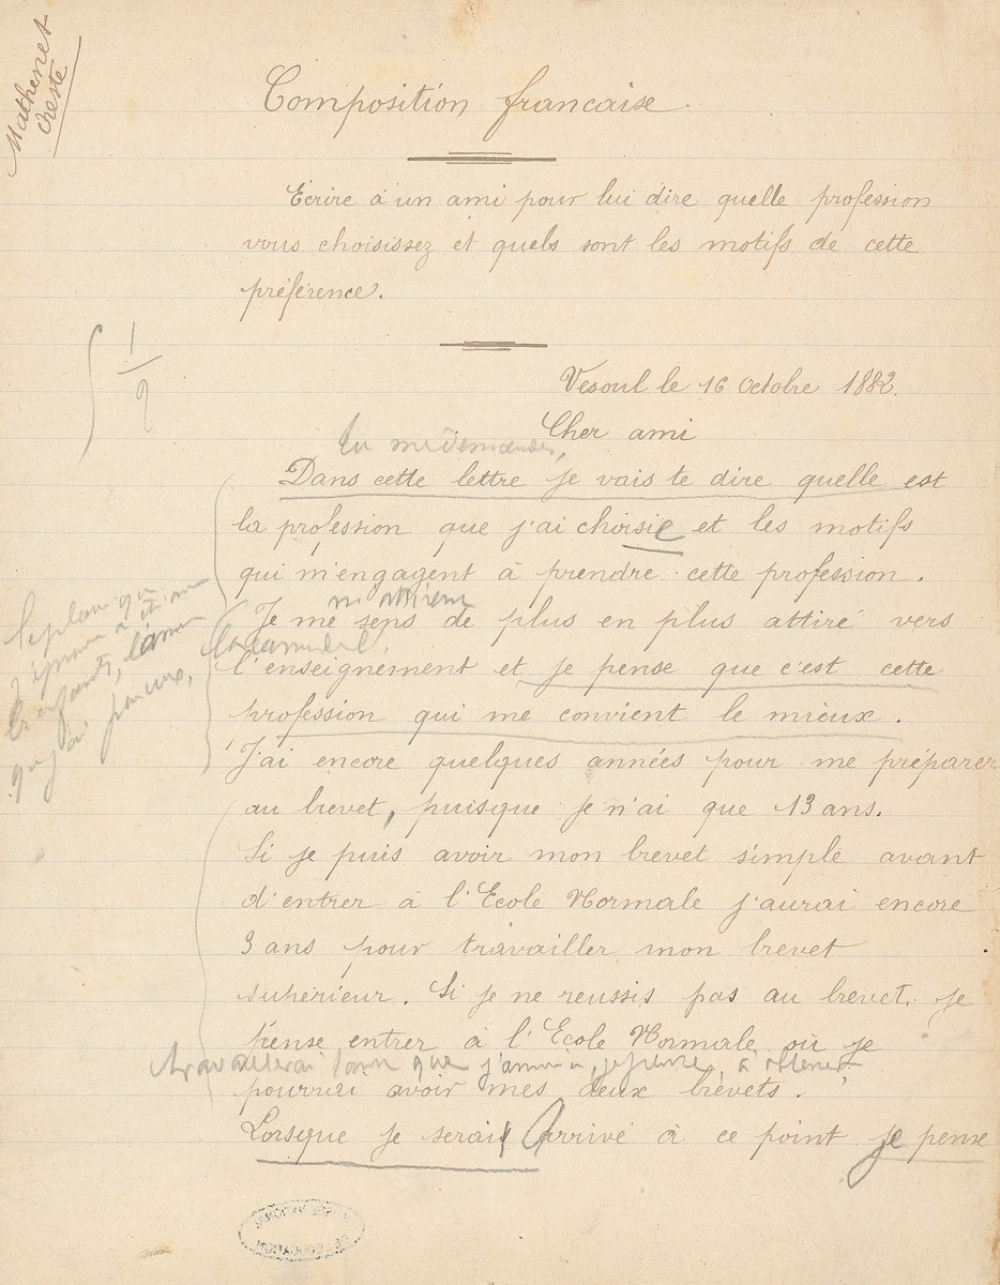 Mathenet
Oreste
Composition francaise
Ecrire à un ami pour lui dire quelle profession
vous choisissez et quels sont les motifs de cette
préférence.
1
2
Vesoul le 16 Octobre 1882.
Cher ami
Tu me demandes,
Dans cette lettre je vais te dire quelle est
la profession que j'ai choisie et les motifs
qui m'engagent à prendre cette profession.
m'attirent
Je me sens de plus en plus attiré vers
l'enseignement et je pense que c'est cette
profession qui me convient le mieux.
J'ai encore quelques années pour me préparer
au brevet, puisque je n'ai que 13 ans.
Si je puis avoir mon brevet simple avant
d'entrer à l'Ecole Normale j'aurai encore
3 ans pour travailler mon brevet
supérieur. Si je ne reussis pas au brevet, je
pense entrer à l'Ecole Normale où je
travaillerai que je pense, à obtenir
pourrai avoir mes deux brevets.
Lorsque je serais arrivé à ce point je pense